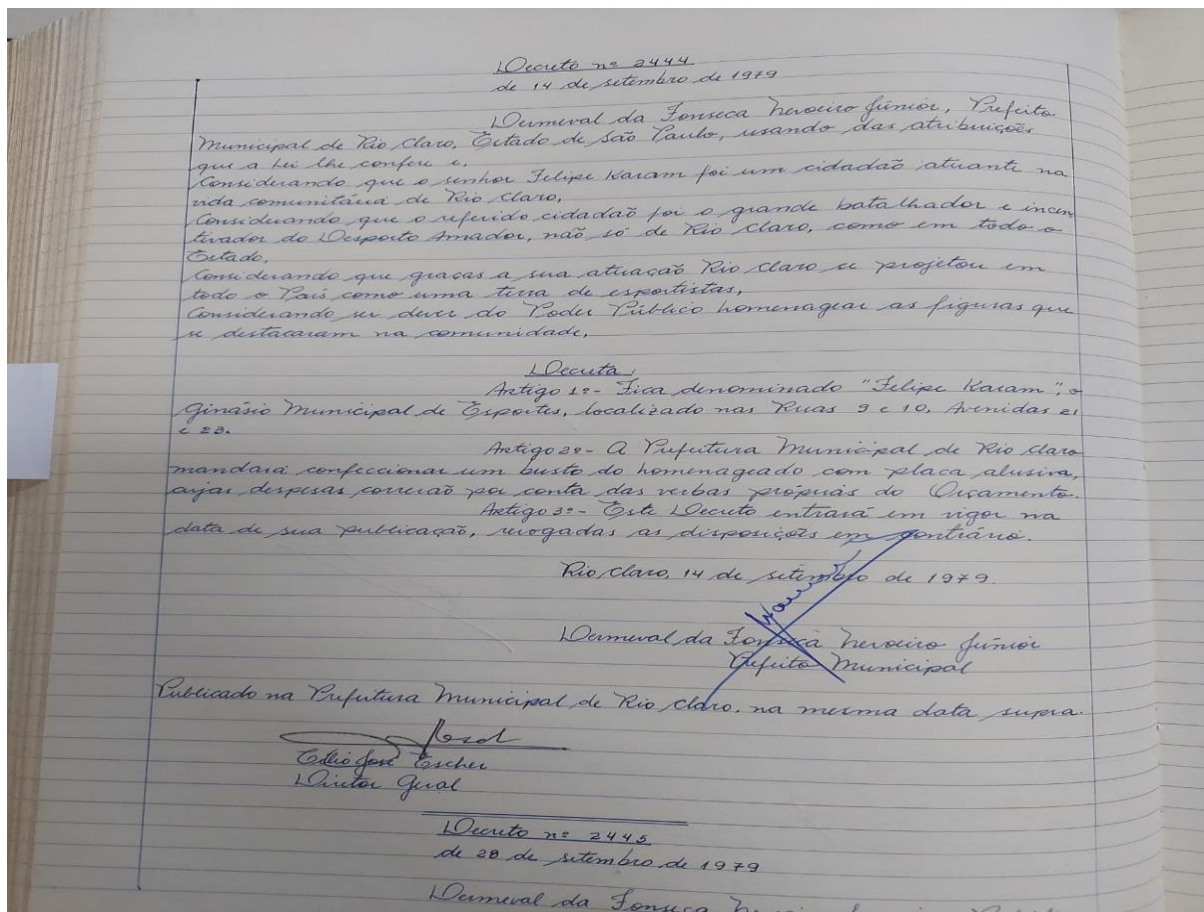 Decreto nº 2444
de 14 de setembro de 1979
Dermeval da Fonseca Nevoeiro Júnior, Prefeito
Municipal de Rio Claro, Estado de São Paulo, usando das atribuições
que a Lei lhe confere e,
Considerando que o senhor Felipe Karam foi um cidadão atuante na
vida comunitária de Rio Claro,
Considerando que o referido cidadão foi o grande batalhador e incen
tivador do Desporto Amador, não só de Rio Claro, como em todo o
Estado,
Considerando que graças a sua atuação Rio Claro se projetou em
todo o País como uma terra de esportistas,
Considerando ser dever do Poder Público homenagear as figuras que
se destacaram na comunidade,
Decreta:
Artigo 1º - Fica denominado "Felipe Karam", o
Ginásio Municipal de Esportes, localizado nas Ruas 9 e 10, Avenidas 21
e 23.
Artigo 2º - A Prefeitura Municipal de Rio Claro
mandará confeccionar um busto do homenageado com placa alusiva,
cujas despesas correrão por conta das verbas próprias do Orçamento.
Artigo 3º - Este Decreto entrará em vigor na
data de sua publicação, revogadas as disposições em contrário.
Rio Claro, 14 de setembro de 1979.
Dermeval da Fonseca Nevoeiro Júnior
Prefeito Municipal
Publicado na Prefeitura Municipal de Rio Claro, na mesma data supra.
José Escher
Diretor Geral
Decreto nº 2445
de 28 de setembro de 1979
Dermeval da Fonseca